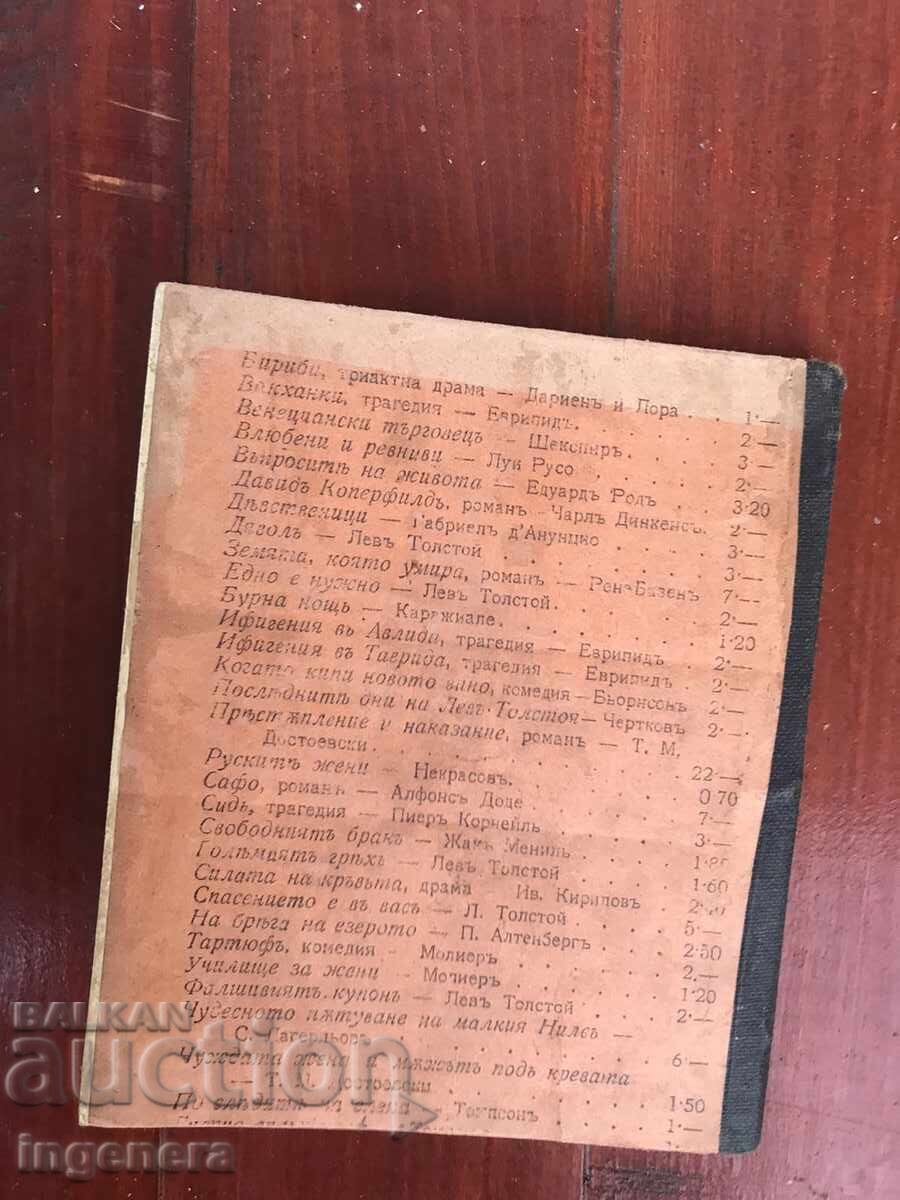 Бириби, триактна драма — Дариенъ и Лора . . 1·—
Вакханки, трагедия — Еврипидъ. . . . . 2·—
Венециански търговецъ — Шекспиръ. . . . 3·—
Влюбени и ревниви — Луи Русо . . . . 2·—
Въпроситѣ на живота — Едуардъ Родъ . . 3·20
Давидъ Коперфилдъ, романъ — Чарлъ Динкенсъ. 2·—
Дѣвственици — Габриелъ д'Анунцио . . . 3·—
Дяволъ — Левъ Толстой . . . . . 3·—
Земята, която умира, романъ — Рене Базенъ 7·—
Едно е нужно — Левъ Толстой. . . . . 2·—
Бурна нощь — Караджиале. . . . . 1·20
Ифигения въ Авлида, трагедия — Еврипидъ . . 2·—
Ифигения въ Таврида, трагедия — Еврипидъ . 2·—
Когато кипи новото вино, комедия — Бьорнсонъ 2·—
Послѣднитѣ дни на Левъ Толстоя — Чертковъ 2·—
Прѣстѫпление и наказание, романъ — Т. М.
Достоевски. . . . . 22·—
Рускитѣ жени — Некрасовъ. . . . . 0 70
Сафо, романъ — Алфонсъ Доде . . . . 7·—
Сидъ, трагедия — Пиеръ Корнейль . . . . 3·—
Свободниятъ бракъ — Жакъ Мениль . . .
Голѣмиятъ грѣхъ — Левъ Толстой . . . 1·60
Силата на кръвьта, драма Ив. Кирилов
Спасението е въ васъ — Л. Толстой . . . 5·—
На брѣга на езерото — П. Алтенбергъ . . 2·50
Тартюфъ, комедия — Молиеръ . . . . 2.—
Училище за жени — Молиеръ . . . . 1·20
Фалшивиятъ купонъ — Левъ Толстой . . . 2·—
Чудесното пѫтуване на малкия Нилсъ —
С. Лагерльовъ . . . . 6·—
Чуждата жена и мѫжътъ подъ кревата
— Т. М. Достоевски . . . . 1·50
По слѣдитѣ на — Томпсонъ . . . 1·—
BALKAN
auction
ingenera